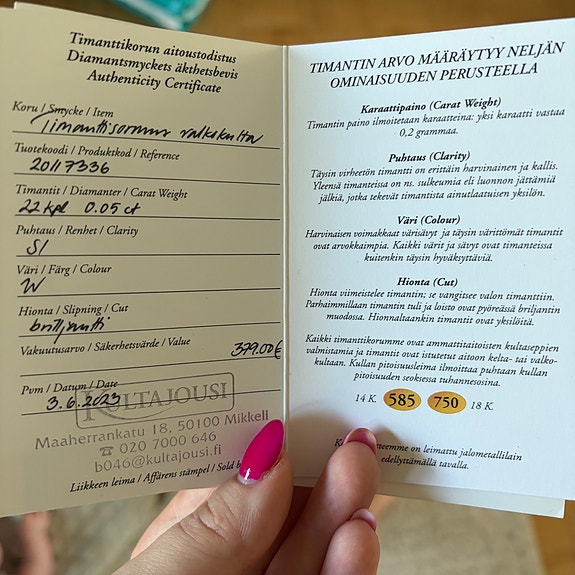 Timanttikorun aitoustodistus
Diamantsmyckets äkthetsbevis
Authenticity Certificate
Koru / Smycke / Item
Timanttisormus valkokulta
Tuotekoodi / Produktkod / Reference
20117336
Timantit / Diamanter / Carat Weight
22 kpl 0.05 ct
Puhtaus / Renhet / Clarity
SI
Väri / Färg / Colour
W
Hionta / Slipning / Cut
briljantti
Vakuutusarvo / Säkerhetsvärde / Value
379.00 €
Pvm / Datum / Date
3.6.2023
KULTAJOUSI
Maaherrankatu 18, 50100 Mikkeli
☎ 020 7000 646
b046@kultajousi.fi
Liikkeen leima / Affärens stämpel / Sold b
TIMANTIN ARVO MÄÄRÄYTYY NELJÄN
OMINAISUUDEN PERUSTEELLA
Karaattipaino (Carat Weight)
Timantin paino ilmoitetaan karaatteina: yksi karaatti vastaa
0,2 grammaa.
Puhtaus (Clarity)
Täysin virheetön timantti on erittäin harvinainen ja kallis.
Yleensä timanteissa on ns. sulkeumia eli luonnon jättämiä
jälkiä, jotka tekevät timantista ainutlaatuisen yksilön.
Väri (Colour)
Harvinaisen voimakkaat värisävyt ja täysin värittömät timantit
ovat arvokkaimpia. Kaikki värit ja sävyt ovat timanteissa
kuitenkin täysin hyväksyttäviä.
Hionta (Cut)
Hionta viimeistelee timantin; se vangitsee valon timanttiin.
Parhaimmillaan timantin tuli ja loisto on pyöreässä briljantin
muodossa. Hionnaltaankin timantit ovat yksilöitä.
Kaikki timanttikorumme ovat ammattitaitoisten kultaseppien
valmistamia ja timantit ovat istutetut aitoon kelta- tai valko-
kultaan. Kullan pitoisuusleima ilmoittaa puhtaan kullan
pitoisuuden seoksessa tuhannesosina.
14 K. 585 750 18 K.
tteemme on leimattu jalometallilain
edellyttämällä tavalla.